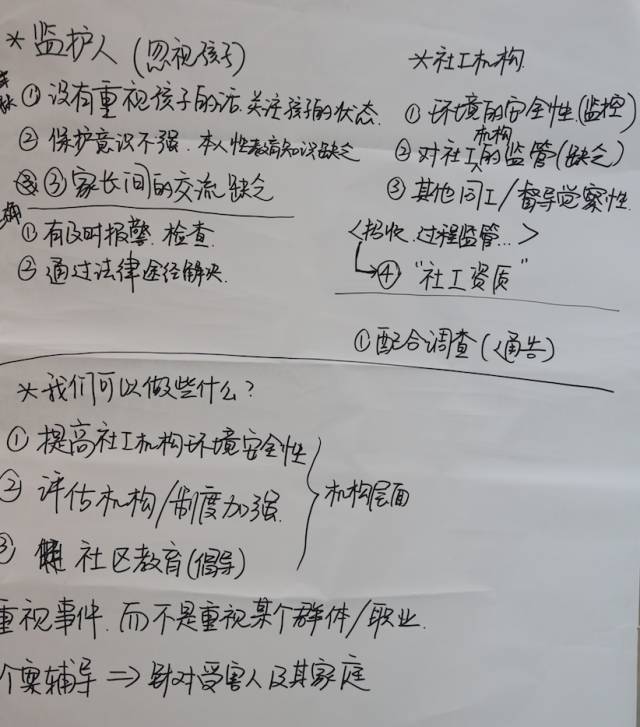 *监护人(忽视孩子)
①没有重视孩子的话.关注孩子的状态.
②保护意识不强.本人性教育知识缺乏
③家长间的交流缺乏
①有及时报警.检查.
②通过法律途径解决.
*社工机构.
①环境的安全性.(监控)
②对社工机构的监管(缺乏)
③其他同工/督导觉察性.
<招收.过程监管...>
④"社工资质"
①配合调查(通告)
*我们可以做些什么?
①提高社工机构环境安全性
②评估机构/制度加强.
③社区教育(倡导)
机构层面
重视事件.而不是重视某个群体/职业.
个案辅导=>针对受害人及其家庭